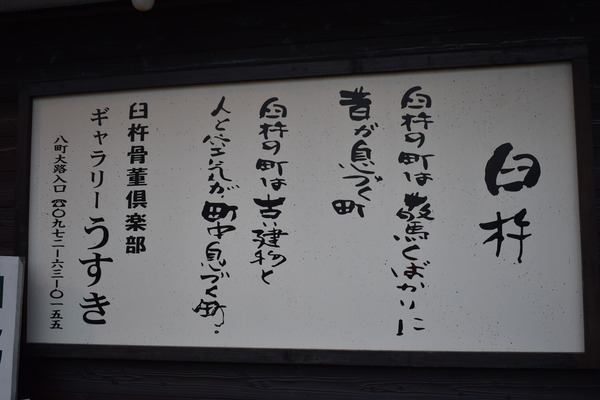 臼杵
臼杵の町は驚くばかりに
昔が息づく町
臼杵の町は古い建物と
人と空気が町中息づく町。
臼杵骨董倶楽部
ギャラリーうすき
八町大路入口 ☎〇九七二-六三-〇一五五